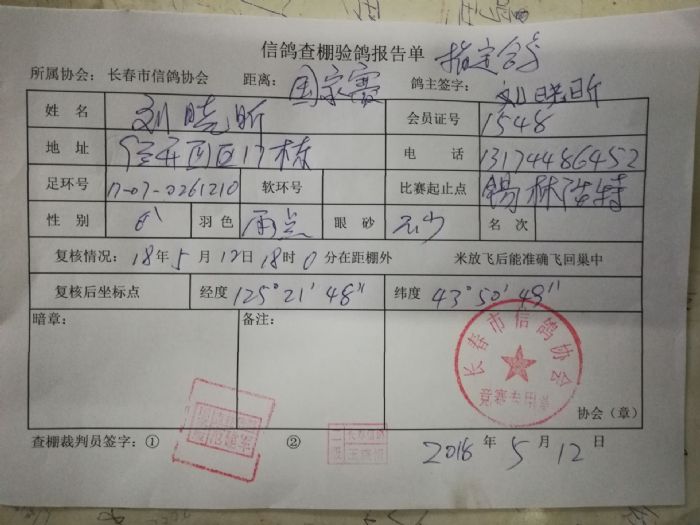 信鸽查棚验鸽报告单 指定合矣
所属协会: 长春市信鸽协会 距离: 国家赛 鸽主签字: 刘晓昕
姓名 刘晓昕 会员证号 1548
地址 园区17栋 电话 13174486452
足环号 17-07-0261210 软环号 比赛起止点 锡林浩特
性别 羽色 雨点 眼砂 名次
复核情况: 18年5月12日18时0分在距棚外 米放飞后能准确飞回巢中
复核后坐标点 经度 125°21′48″ 纬度 43°50′49″
暗章: 备注:
长春市信鸽协会
竞赛专用章
协会(章)
查棚裁判员签字: ① ②
2018年5月12日